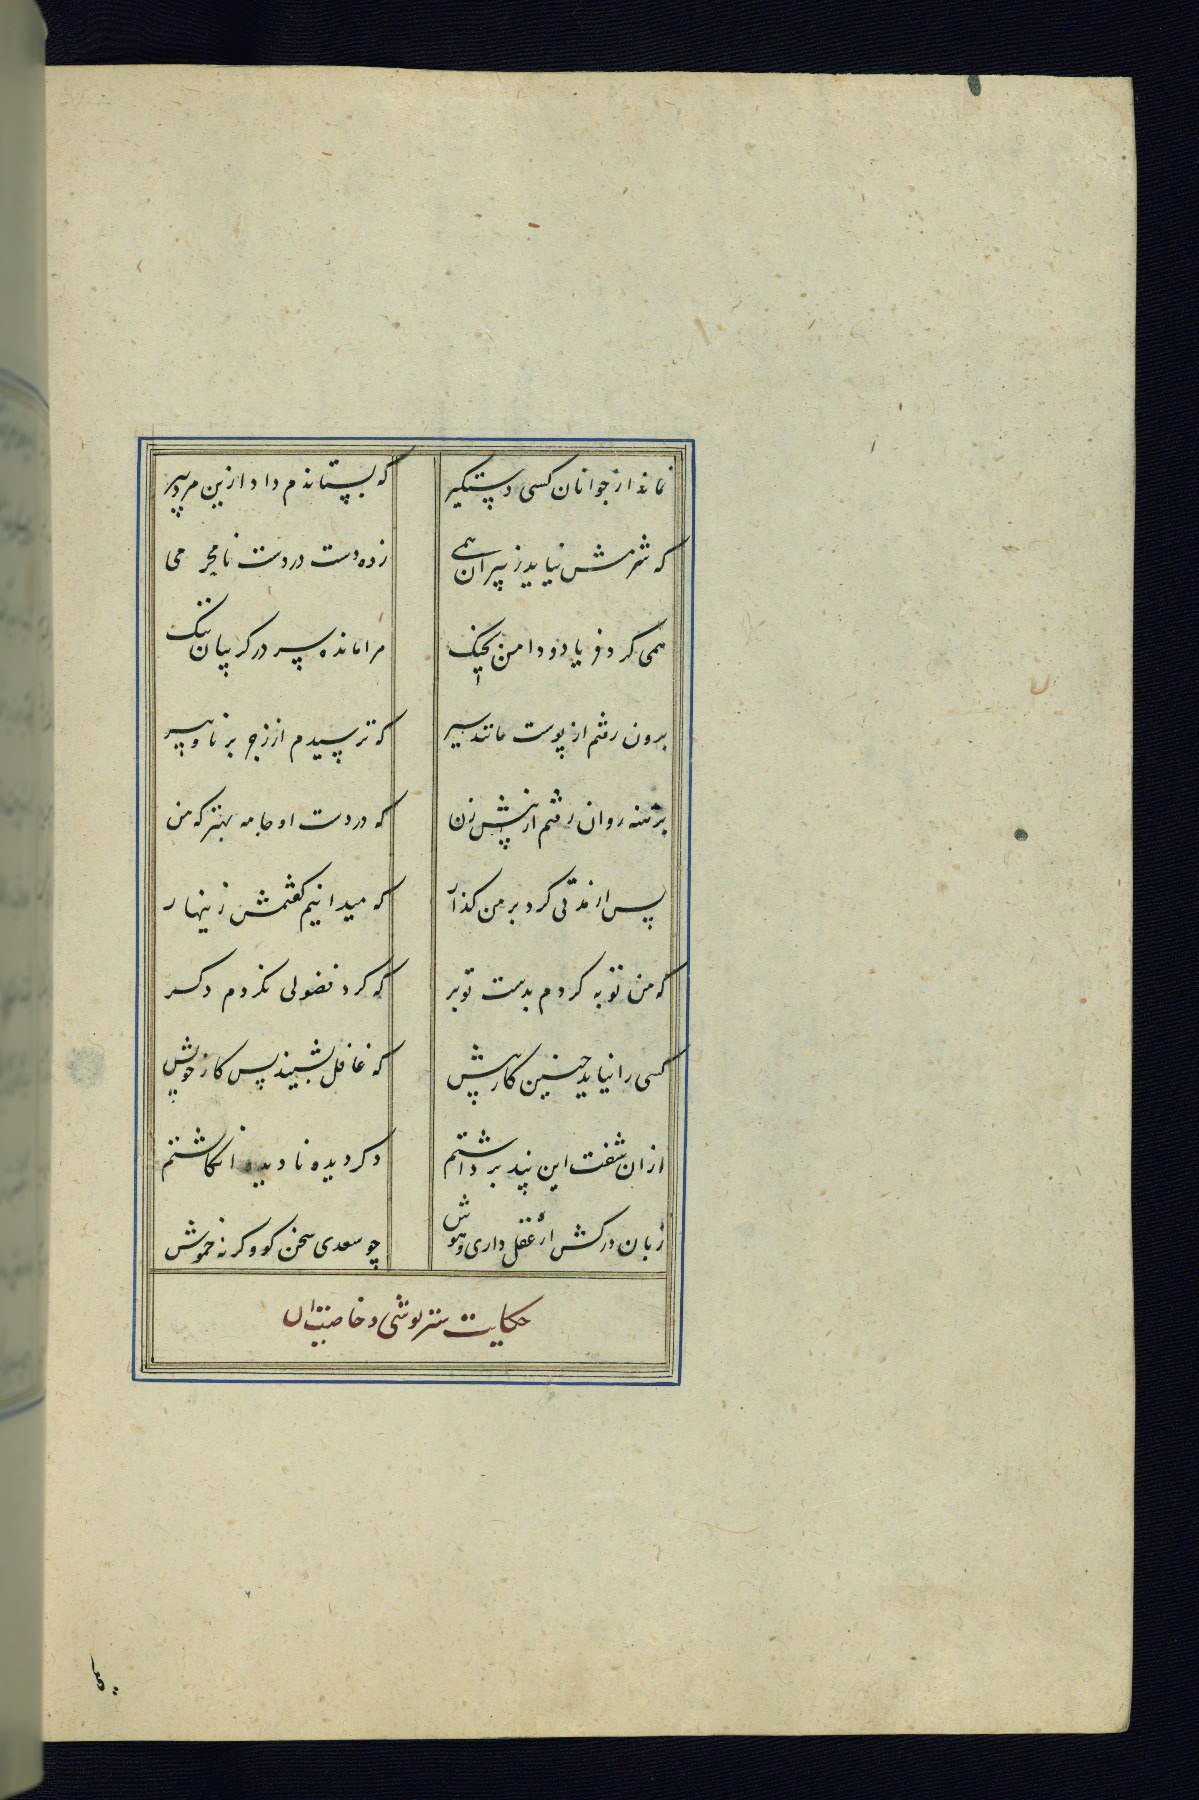 نماند از جوانان کسی دستگیر که بستاندم داد ازین مرد پیر
که شرمش نیاید ز پیران همی زده دست در دست نامحرمی
همی کرد فریاد و دامن بچنگ مرا مانده سر در کریبان تنک
برون رفتم از پوست مانند سیر که ترسیدم از زجر برنا و پیر
برهنه روان رفتم از پیش زن که در دست او جامه بهتر که من
پس از مدتی کرد بر من کذار که میدانیم کفتمش زینهار
که من توبه کردم بدست تو بر که کرد فضولی نکردم دکر
کسی را نیاید چنین کار پیش که غافل نشیند پس کار خویش
ازان شنعت این پند برداشتم دکر دیده نادیده انکاشتم
زبان درکش ار عقل داری و هوش چو سعدی سخن کو وکرنه خموش
حکایت سترپوشی و خاصیت آن